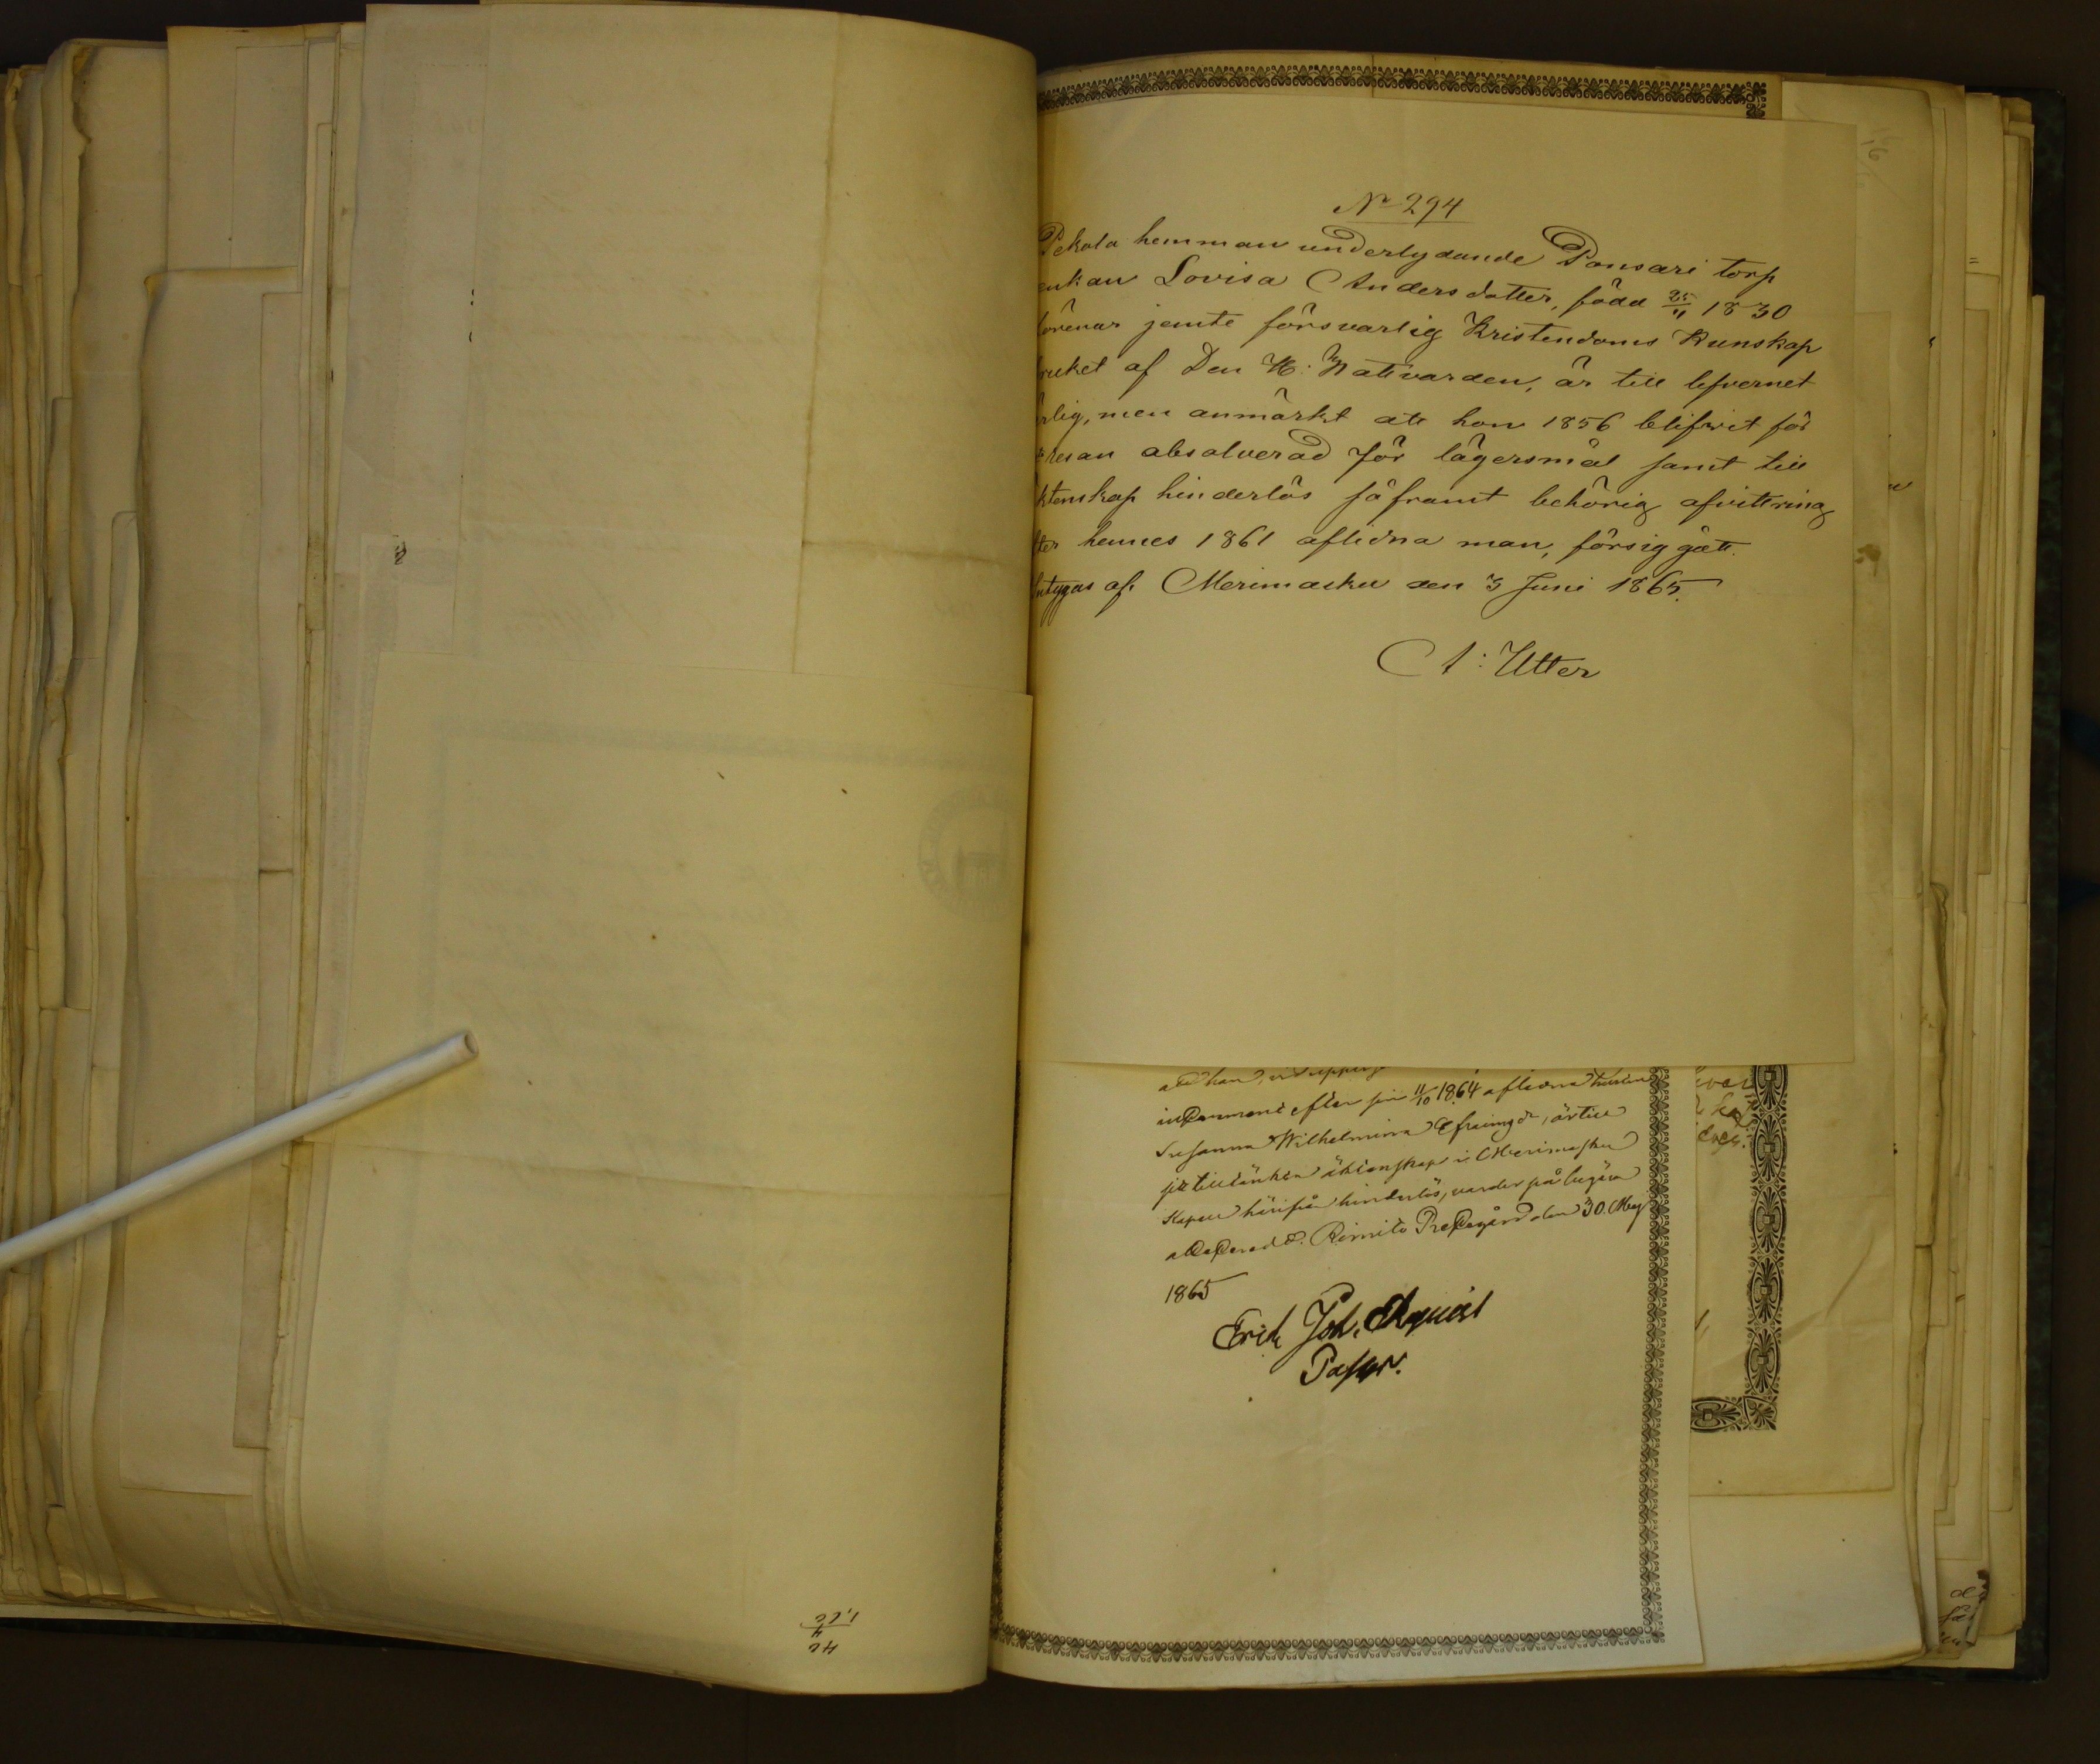 No 294
Pekola hemman underlydande Pansari torp
enkan Lovisa Andersdotter, född 25/11 1830
förenar jemte försvarlig Kristendoms Kunskap
ruket af Den H: Nattvarden, är till lefvernet
rlig, men anmärkt att hon 1856 blifvit för
resan absolverad för lägersmål samt till
ktenskap hinderlös såframt behörig afvittring
ter hennes 1861 aflidna man, försiggått.
ntygas af. Merimasku den 3 Juni 1865.
A: Utter
att han,
efter sin 11/10 1864 aflidna hustru
Susanna Wilhelmina Efraimsdr, är till
sitt tilltänkta äktenskap i Merimasku
Kapell härifrån hinderlös, varder på begäran
attesteradt. Rimito Prestgård den 30 Maj
1865
Erik Joh. Ekqvist
Pastor.